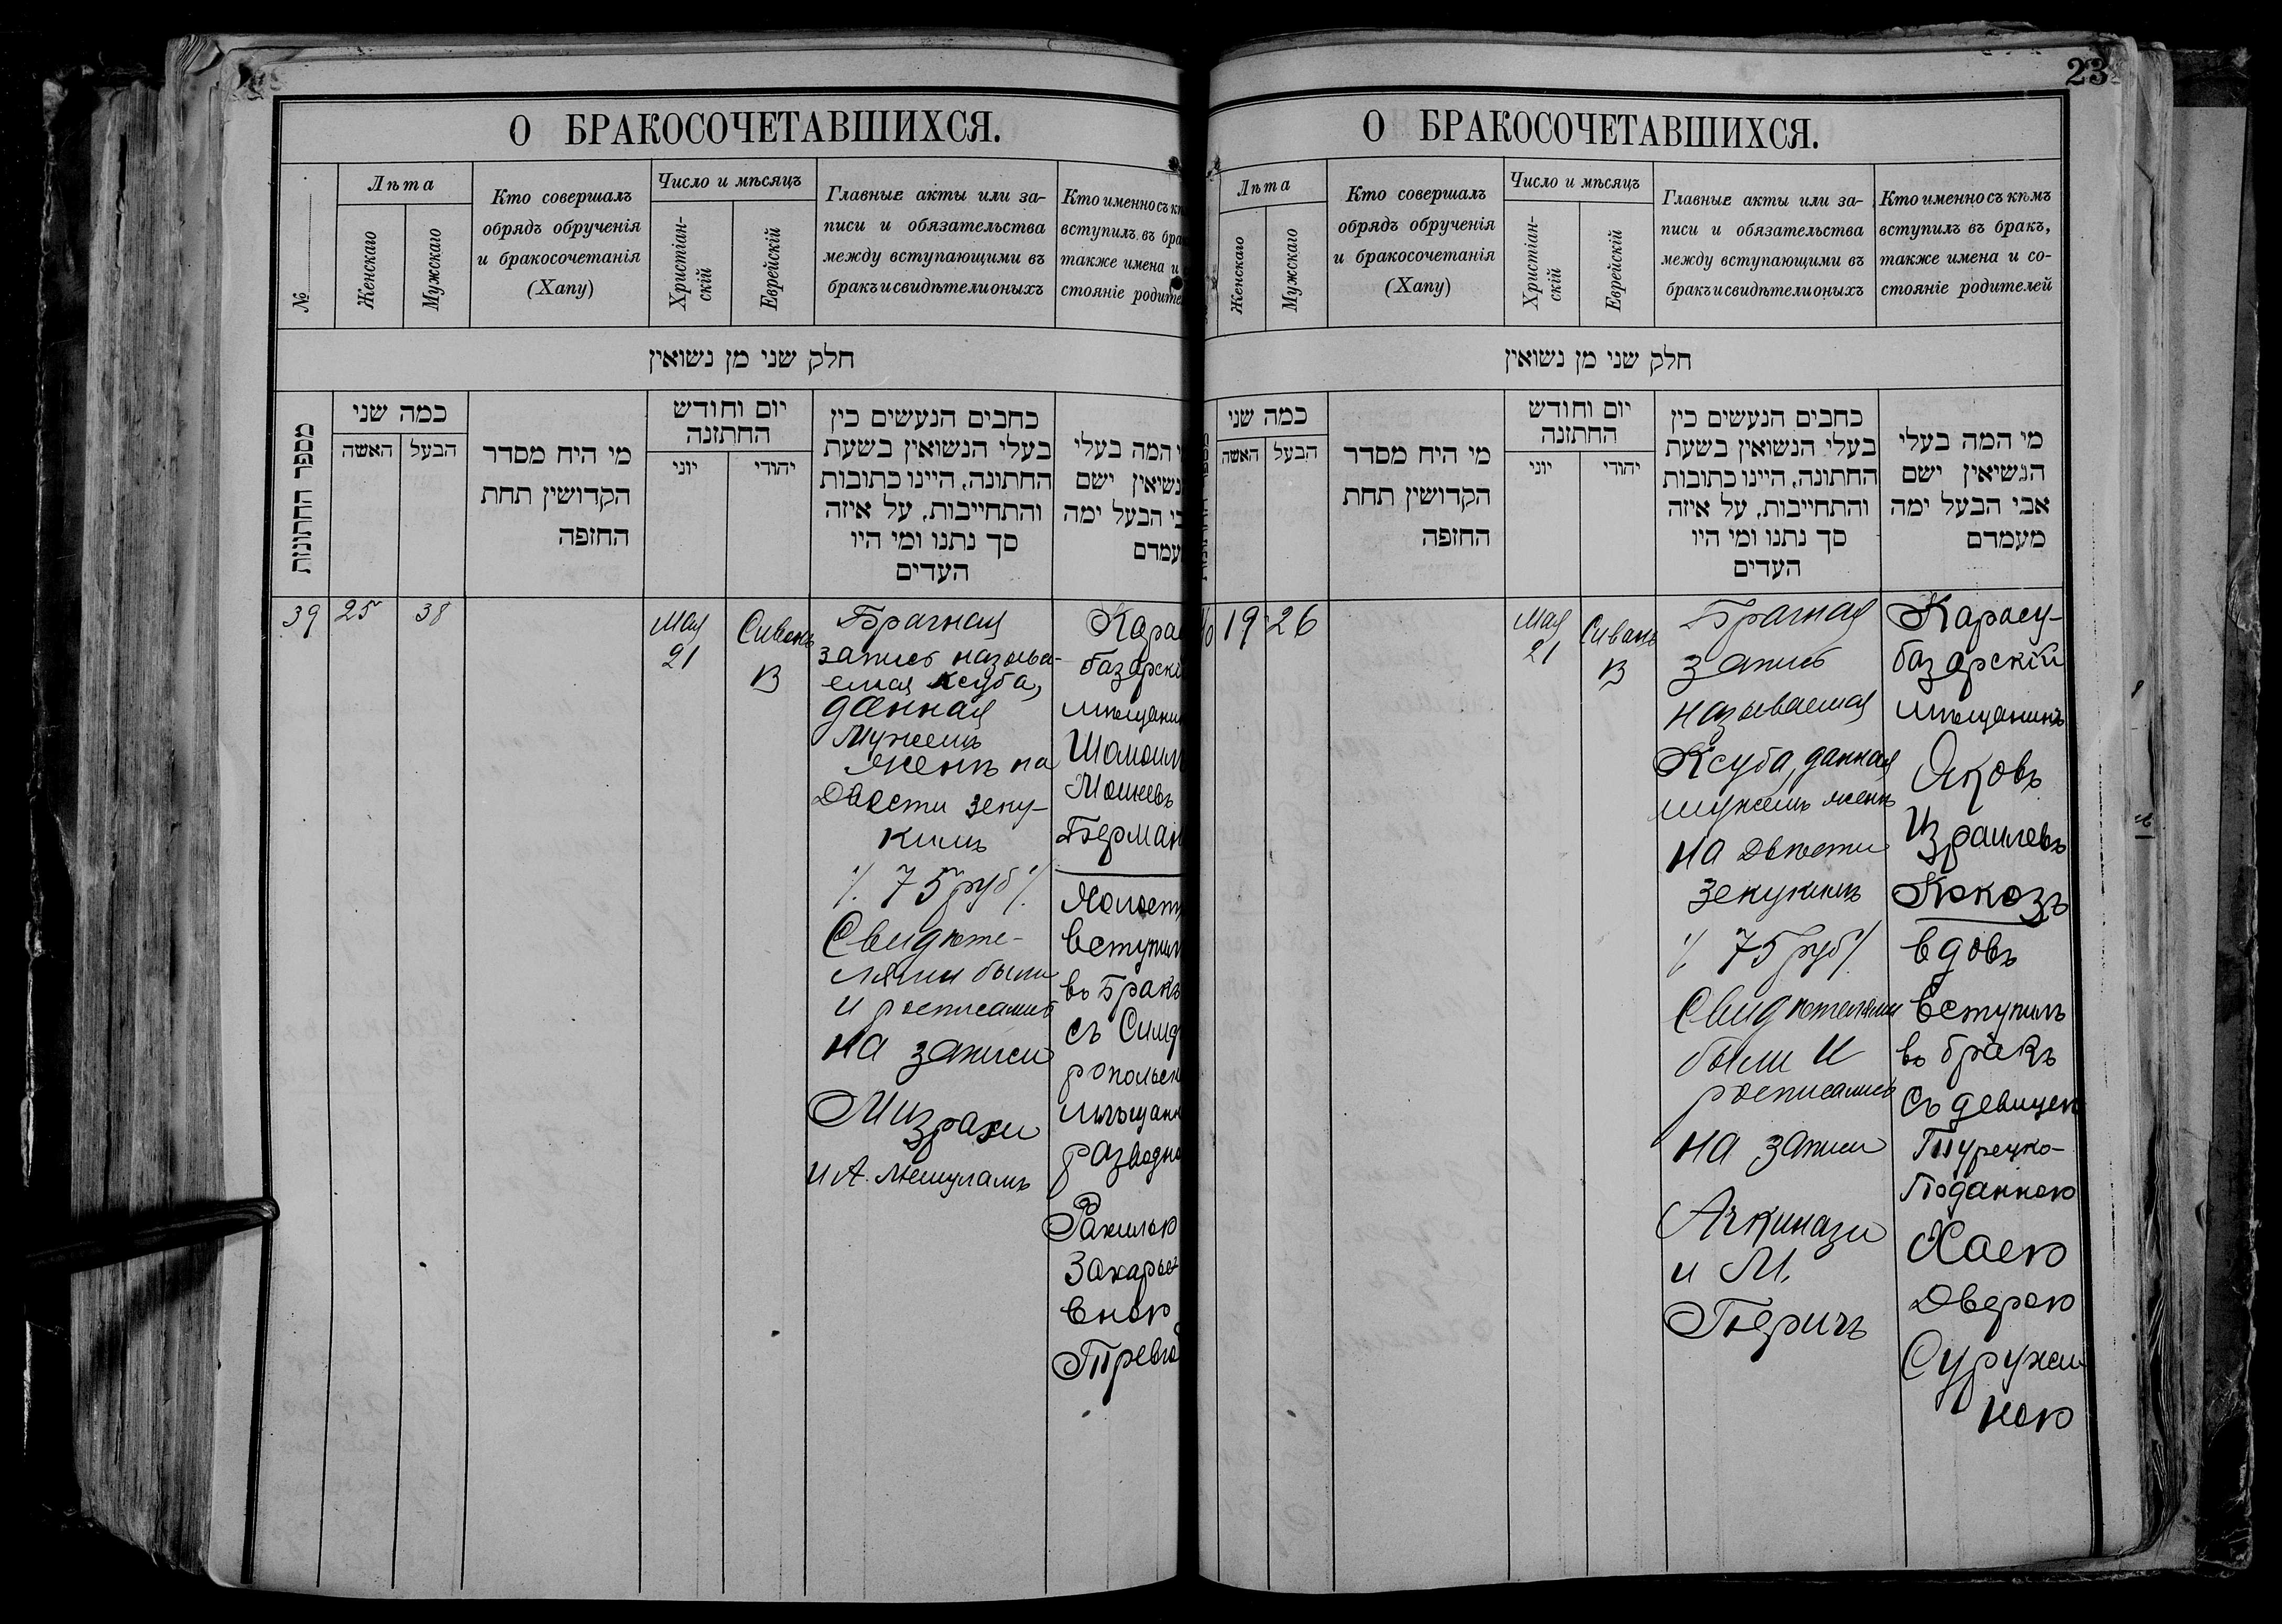 23
О БРАКОСОЧЕТАВШИХСЯ.
№
Лѣта
Женскаго
Мужскаго
Кто совершалъ
обрядъ обрученія
и бракосочетанія
(Хапу)
Число и мѣсяцъ
Христіан-
скій
Еврейскій
Главные акты или за-
писи и обязательства
между вступающими въ
бракъ и свидѣтели оныхъ
Кто именно съ к
вступилъ въ бра
также имена и
стояніе родите
חלק שני מן נשואין
מספר החתונות
כמה שני
האשה
הבעל
מי היח מסדר
הקדושין תחת
החופה
יום וחודש
החתונה
יוני
יהודי
כחבים הנעשים כין
בעלי הנשואין בשעת
החתונה, היינו כתובות
והתחייבות, על איזה
סך נתנו ומי היו
העדים
י המה בעלי
נשיאין ישם
בי הבעל ימה
עמדם
39
25
38
Мая
21
Сивонъ
13
Брачная
запись называ-
емая ксуба,
данная
мужемъ
женѣ на
Двѣсти зеку-
кимъ
./. 75 руб ./.
Свидѣте-
лями были
и росписались
на записи
Мизрахи
и А. Мешуламъ
Карасу
базарскі
мѣщанин
Шамоил
Мошеевъ
Берман
Холост
вступил
въ бракъ
съ Симф
ропольск
мѣщанк
разводно
Рахилью
Захарье
вною
Трево
О БРАКОСОЧЕТАВШИХСЯ.
Лѣта
Женскаго
Мужскаго
Кто совершалъ
обрядъ обрученія
и бракосочетанія
(Хапу)
Число и мѣсяцъ
Христіан-
скій
Еврейскій
Главные акты или за-
писи и обязательства
между вступающими въ
бракъ и свидѣтели оныхъ
Кто именно съ кѣмъ
вступилъ въ бракъ,
также имена и со-
стояніе родителей
חלק שני מן נשואין
כמה שני
האשה
הבעל
מי היח מסדר
הקדושין תחת
החופה
יום וחודש
החתונה
יוני
יהודי
כחבים הנעשים כין
בעלי הנשואין בשעת
החתונה, היינו כתובות
והתחייבות, על איזה
סך נתנו ומי היו
העדים
מי המה בעלי
הנשיאין ישם
אבי הבעל ימה
מעמדם
19
26
Мая
21
Сивонъ
13
Брачная
запись
называемая
Ксуба, данная
мужемъ женѣ
на Двѣсти
зекукимъ
./. 75 руб ./.
Свидѣтелями
были и
росписались
на записи
Ачкинази
и М.
Перичъ
Карасу-
базарскій
мѣщанинъ
Яковъ
Израилевъ
Кокозъ
вдовъ
вступилъ
въ бракъ
съ девицею
Турецко-
Поданною
Хаею
Дверою
Суружи
ною